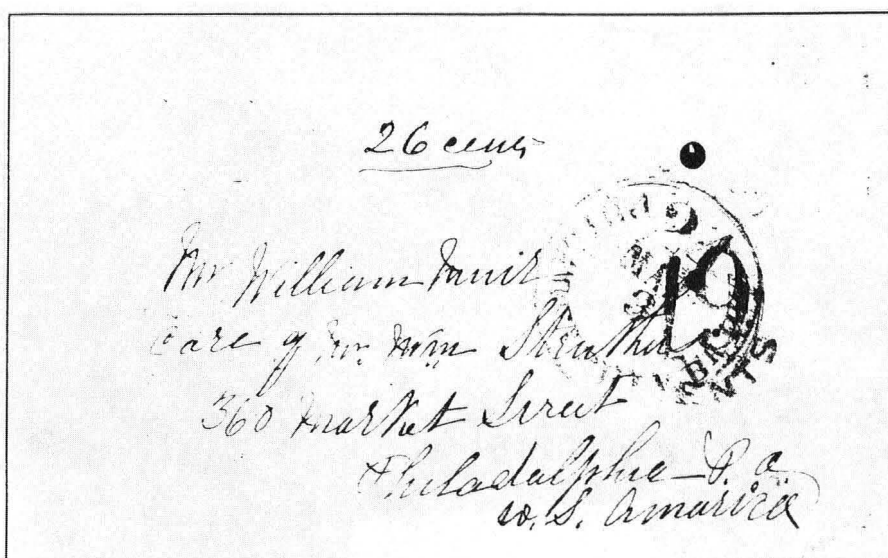 26 cents
Mr William Muir
Care of Mr. Wm Struthers
360 Market Street
Philadelphia P.a
U.S. America
MAR
10
CENTS